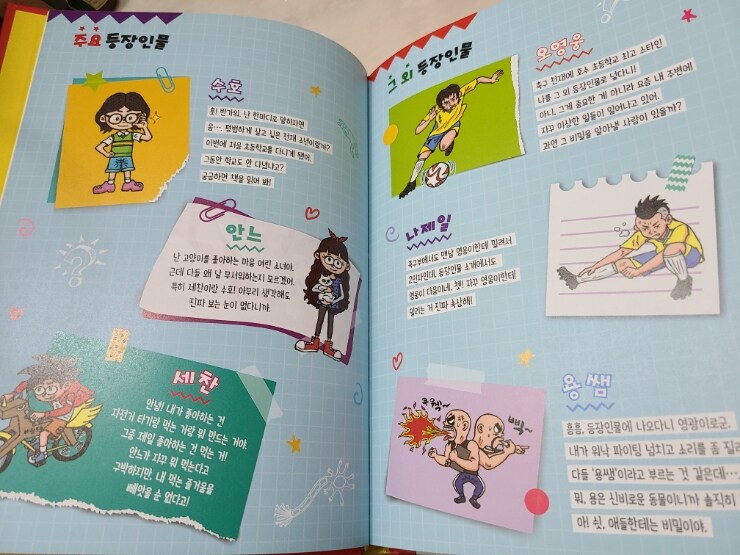 주요 등장인물
수호
훗! 반가워. 난 한마디로 말하자면
음…, 평범하게 살고 싶은 천재 소년이랄까?
이번에 처음 초등학교를 다니게 됐어.
그동안 학교도 안 다녔냐고?
궁금하면 책을 읽어 봐!
안느
난 고양이를 좋아하는 마음 여린 소녀야.
근데 다들 왜 날 무서워하는지 모르겠어.
특히 세찬이랑 수호! 아무리 생각해도
진짜 보는 눈이 없다니까.
세찬
안녕! 내가 좋아하는 건
자전거 타기랑 먹는 거랑 뭐 만드는 거야.
그중 제일 좋아하는 건 먹는 거!
안느가 자꾸 뭐 먹는다고
구박하지만, 내 먹는 즐거움을
빼앗을 순 없다고!
그 외 등장인물
오영웅
축구 천재에 호수 초등학교 최고 스타인
나를 그 외 등장인물로 넣다니!
아니, 그게 중요한 게 아니라 요즘 내 주변에
자꾸 이상한 일들이 일어나고 있어.
과연 그 비밀을 알아낼 사람이 있을까?
나제일
축구부에서도 맨날 영웅이한테 밀려서
2인자인데, 등장인물 소개에서도
영웅이 다음이네. 쳇! 자꾸 영웅이한테
밀리는 거 진짜 속상해!
쿠웩~
빠빡
용쌤
흠흠, 등장인물에 나오다니 영광이로군.
내가 워낙 파이팅 넘치고 소리를 좀 질러
다들 '용쌤'이라고 부르는 것 같은데…
뭐, 용은 신비로운 동물이니까 솔직히
아! 쉿, 애들한테는 비밀이야.